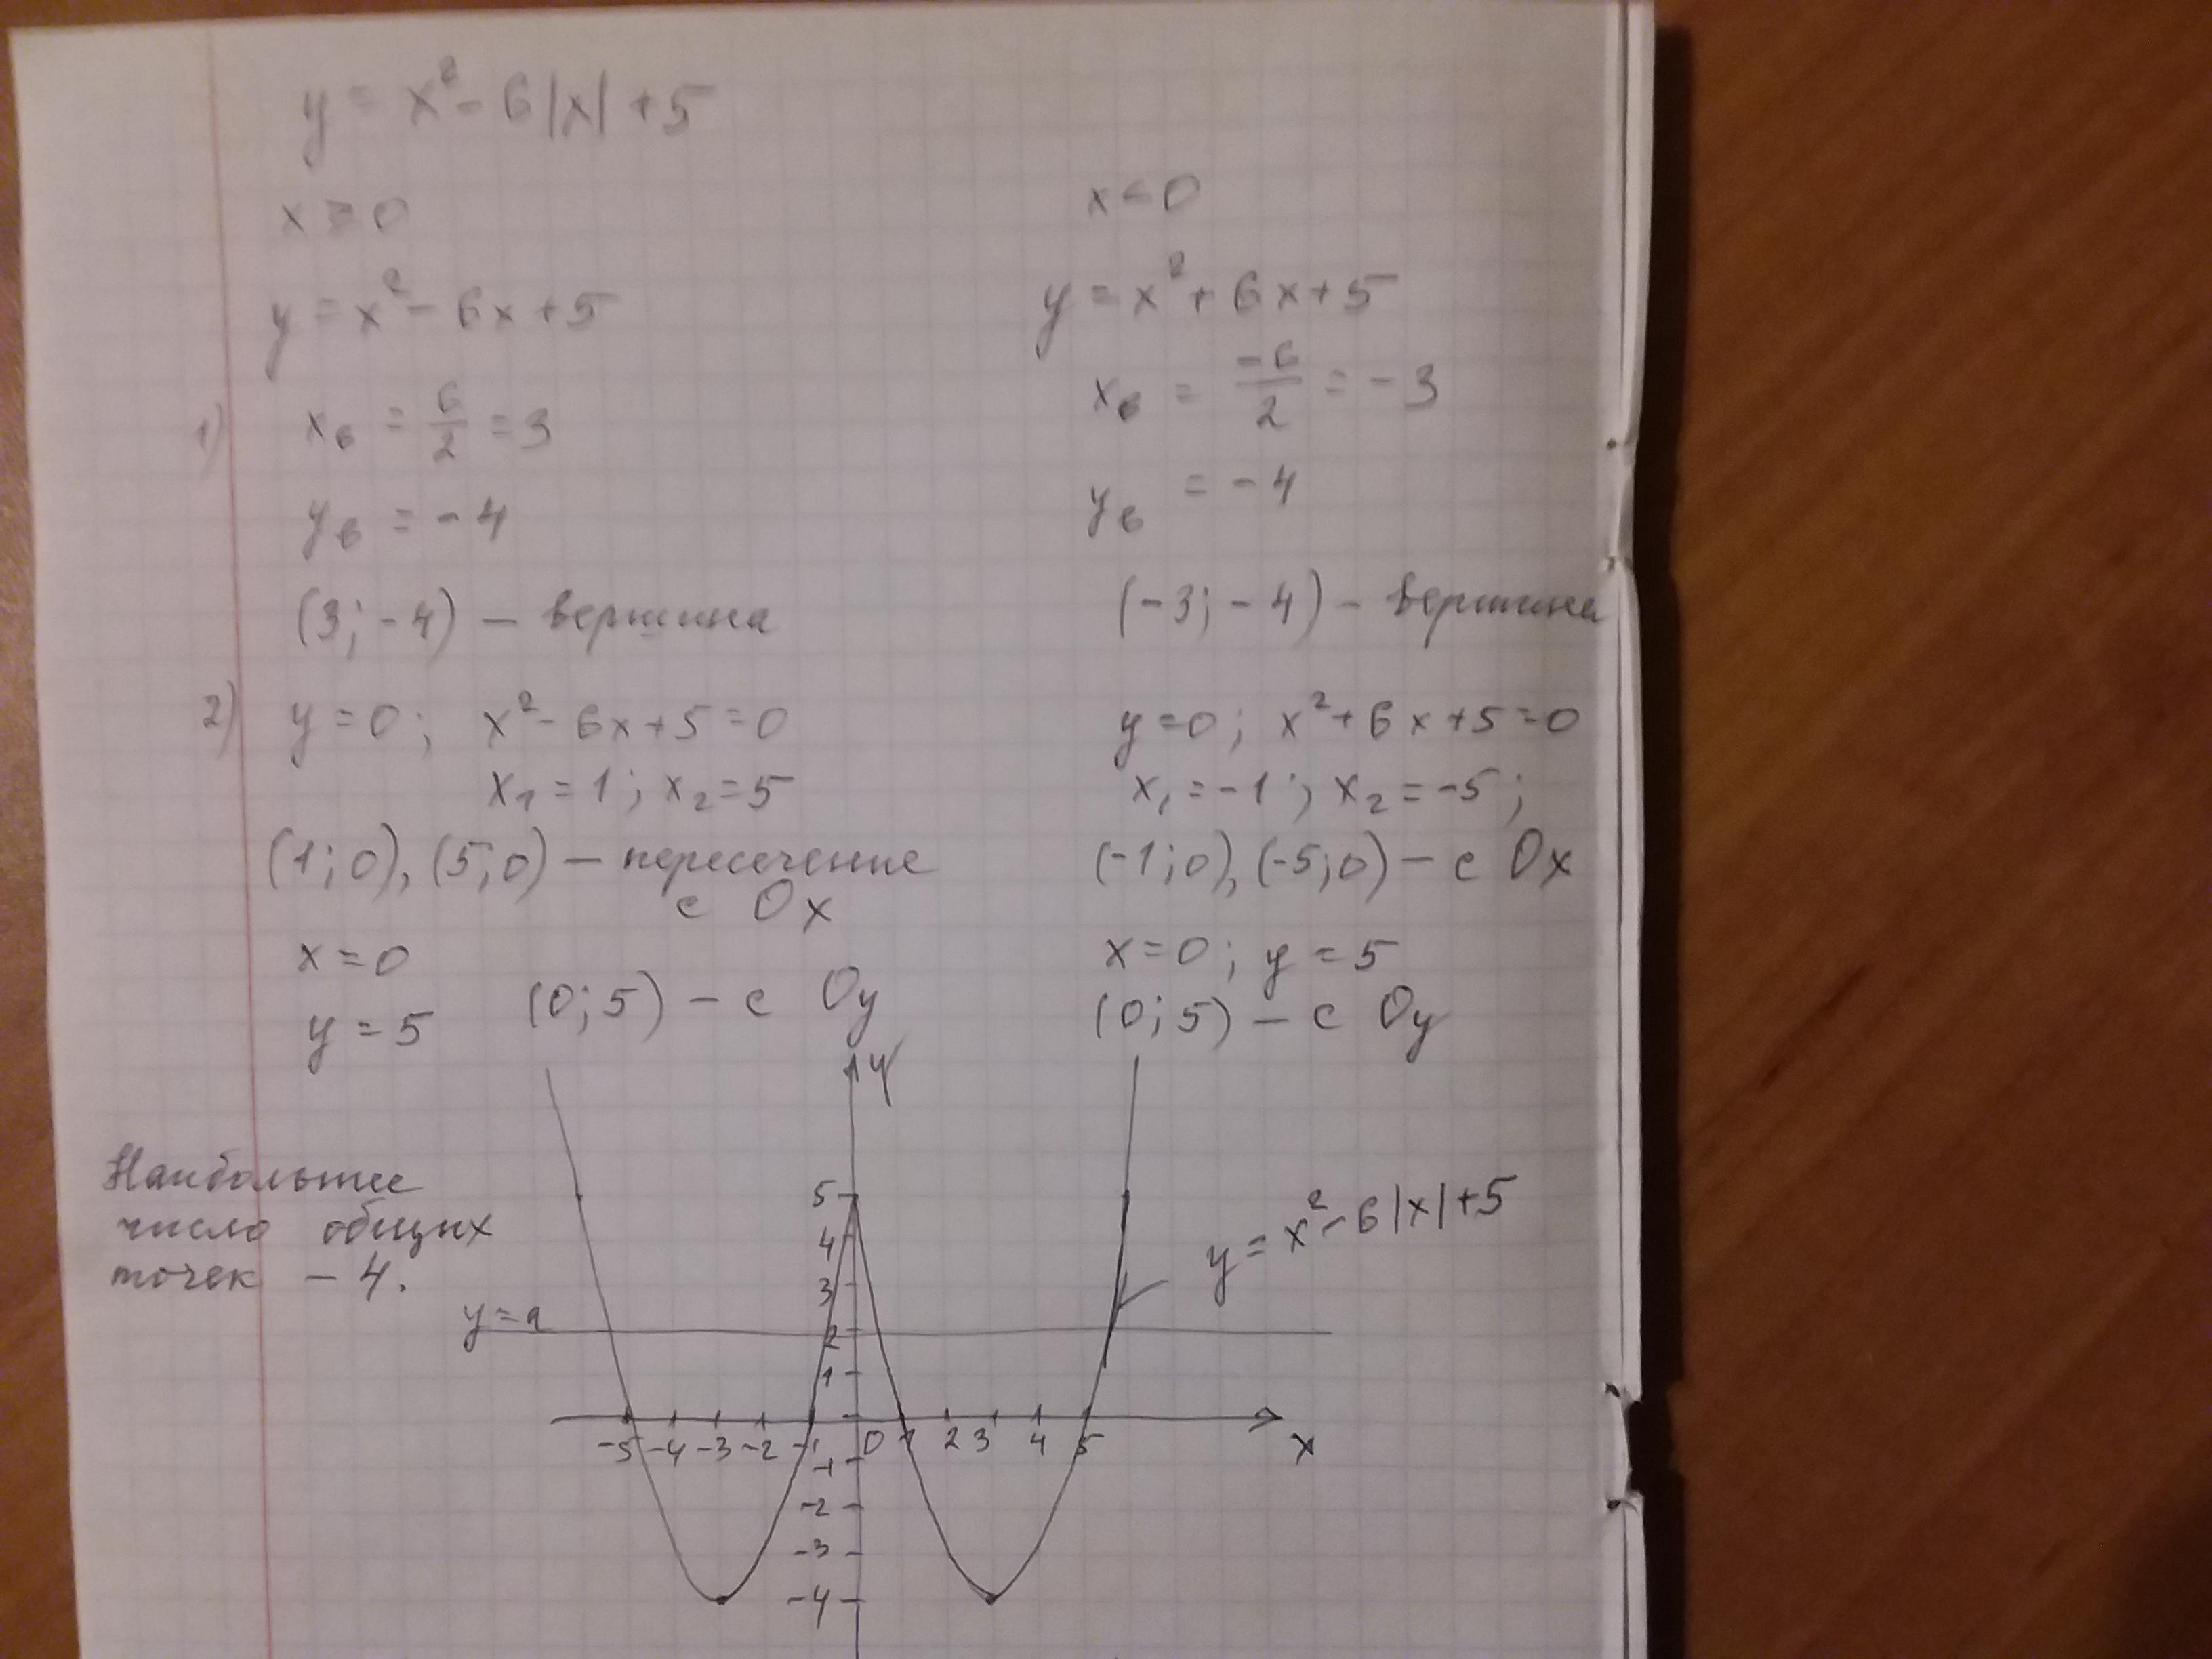 y = x² - 6|x| + 5
x ≥ 0
y = x² - 6x + 5
1) xв = 6/2 = 3
yв = - 4
(3; - 4) — вершина
2) y = 0; x² - 6x + 5 = 0
x₁ = 1; x₂ = 5
(1; 0), (5; 0) — пересечение
с Ox
x = 0
y = 5 (0; 5) — с Oy
x < 0
y = x² + 6x + 5
xв = -6/2 = - 3
yв = - 4
(- 3; - 4) — вершина
y = 0; x² + 6x + 5 = 0
x₁ = -1; x₂ = -5;
(-1; 0), (-5; 0) — с Ox
x = 0; y = 5
(0; 5) — с Oy
Наибольшее
число общих
точек — 4.
y
5
4
3
2
1
y = a
y = x² - 6|x| + 5
-5 -4 -3 -2 -1 0 1 2 3 4 5 x
-1
-2
-3
-4